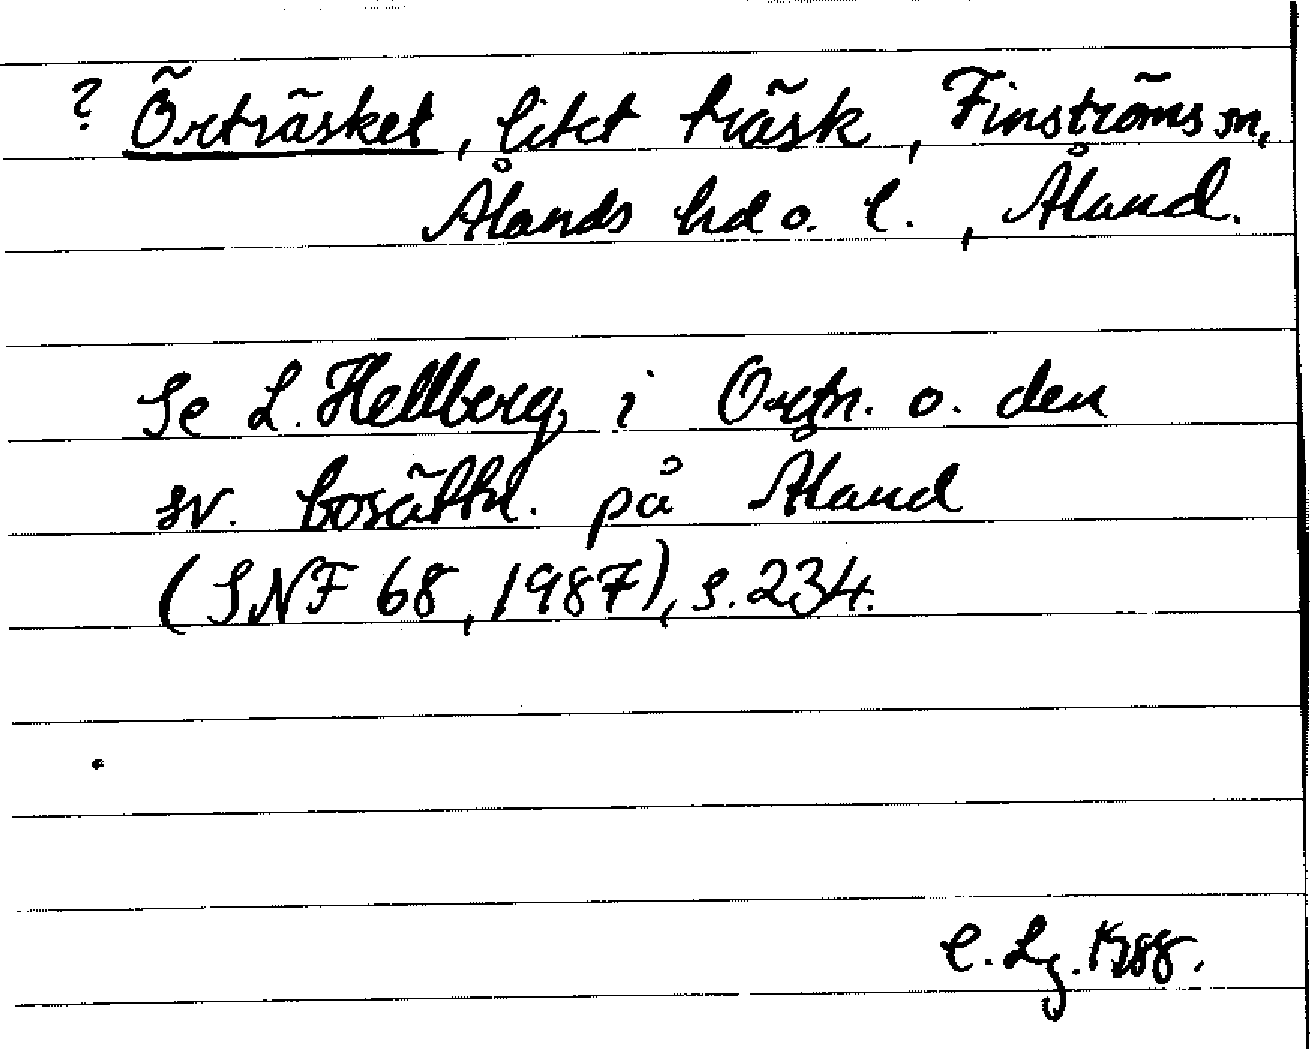 ? Örträsket, litet träsk, Finströms sn,
Ålands hd o. l., Åland.
Se L. Hellberg i Ortn. o. den
sv. bosättn. på Åland
(SNF 68, 1987), s. 234.
C. Lg. 1988.